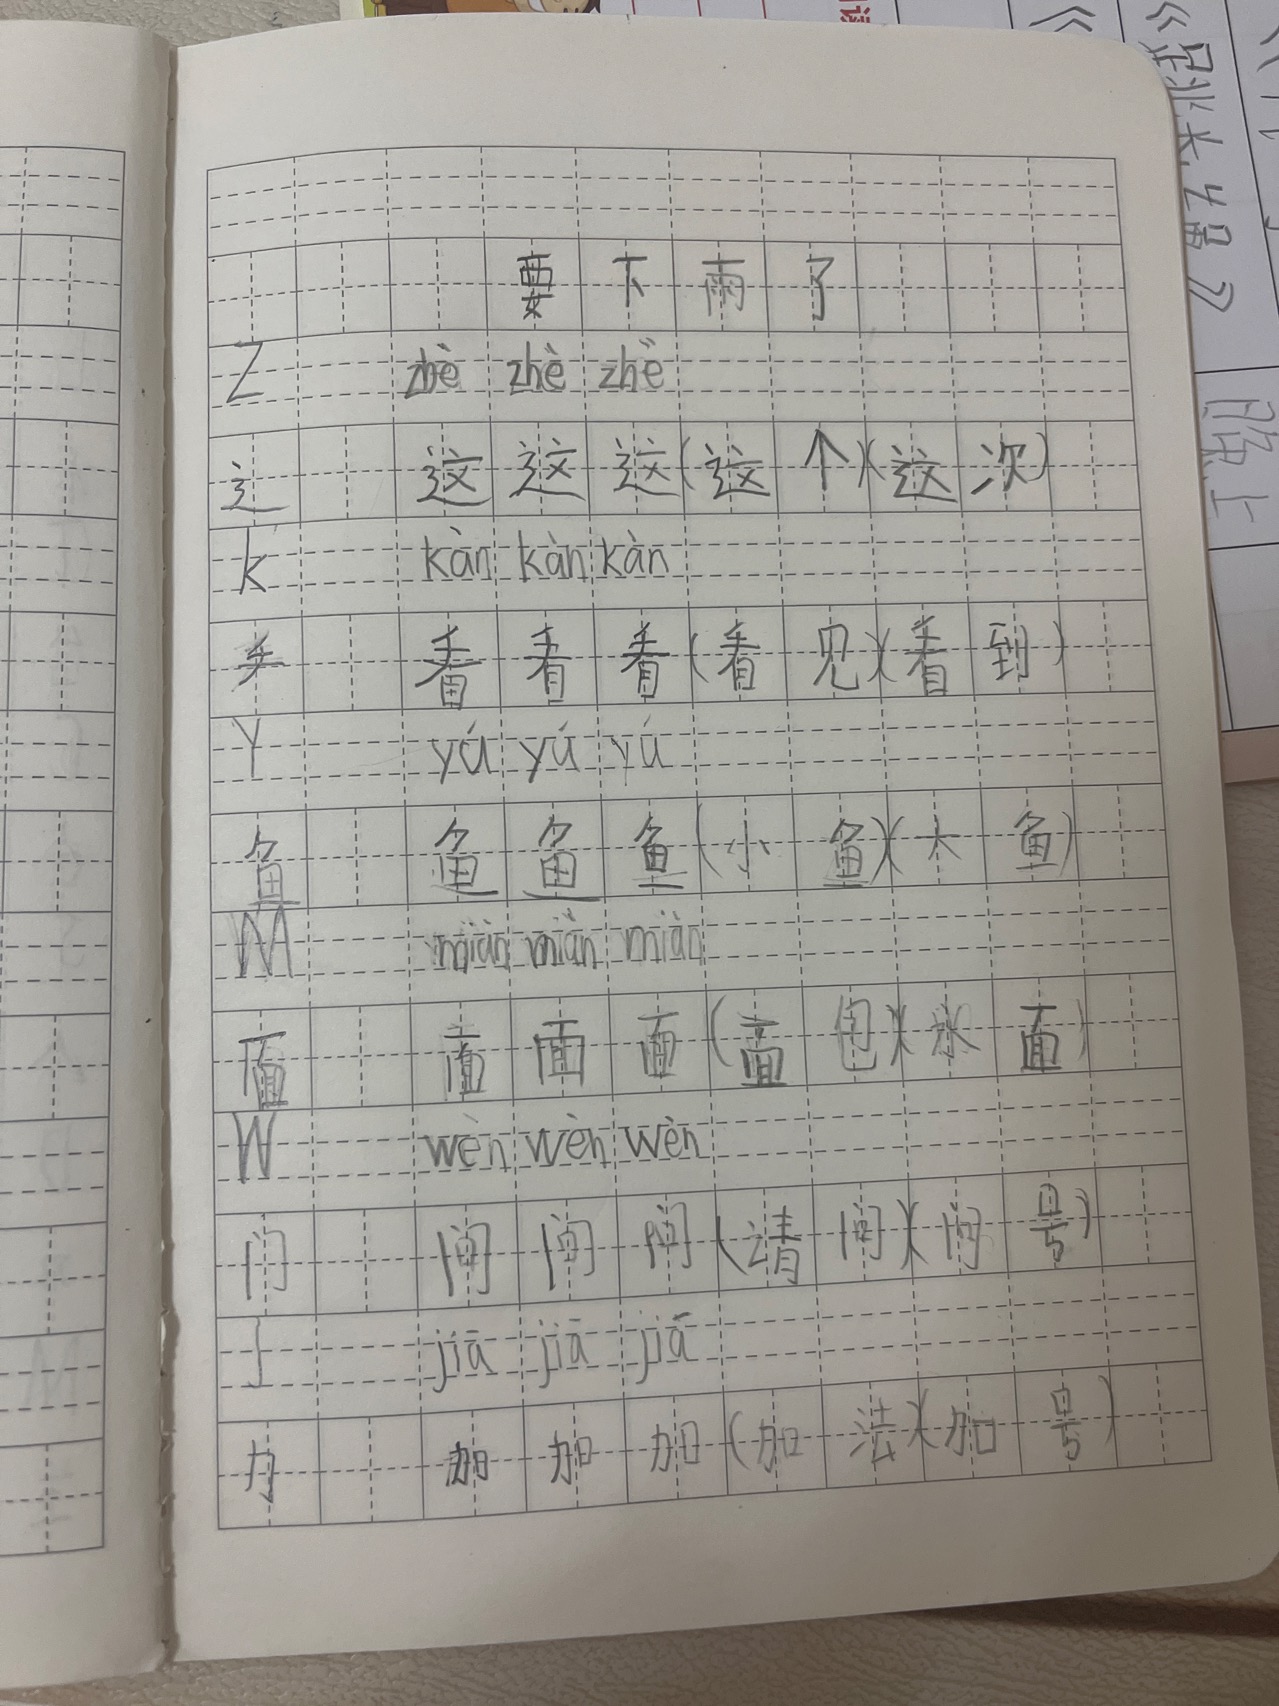 要下雨了
Z zhè zhè zhè
辶 这 这 这 (这个)(这次)
k kàn kàn kàn
看 看 看 (看见)(看到)
Y yú yú yú
鱼 鱼 鱼 鱼 (小鱼)(大鱼)
M miàn miàn miàn
面 面 面 面 (面包)(水面)
W wèn wèn wèn
门 问 问 问 (请问)(问号)
J jiā jiā jiā
力 加 加 加 (加法)(加号)